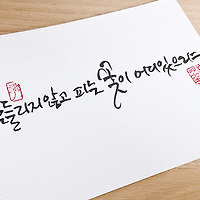 들리지않고 피는 꽃이 어디있으랴